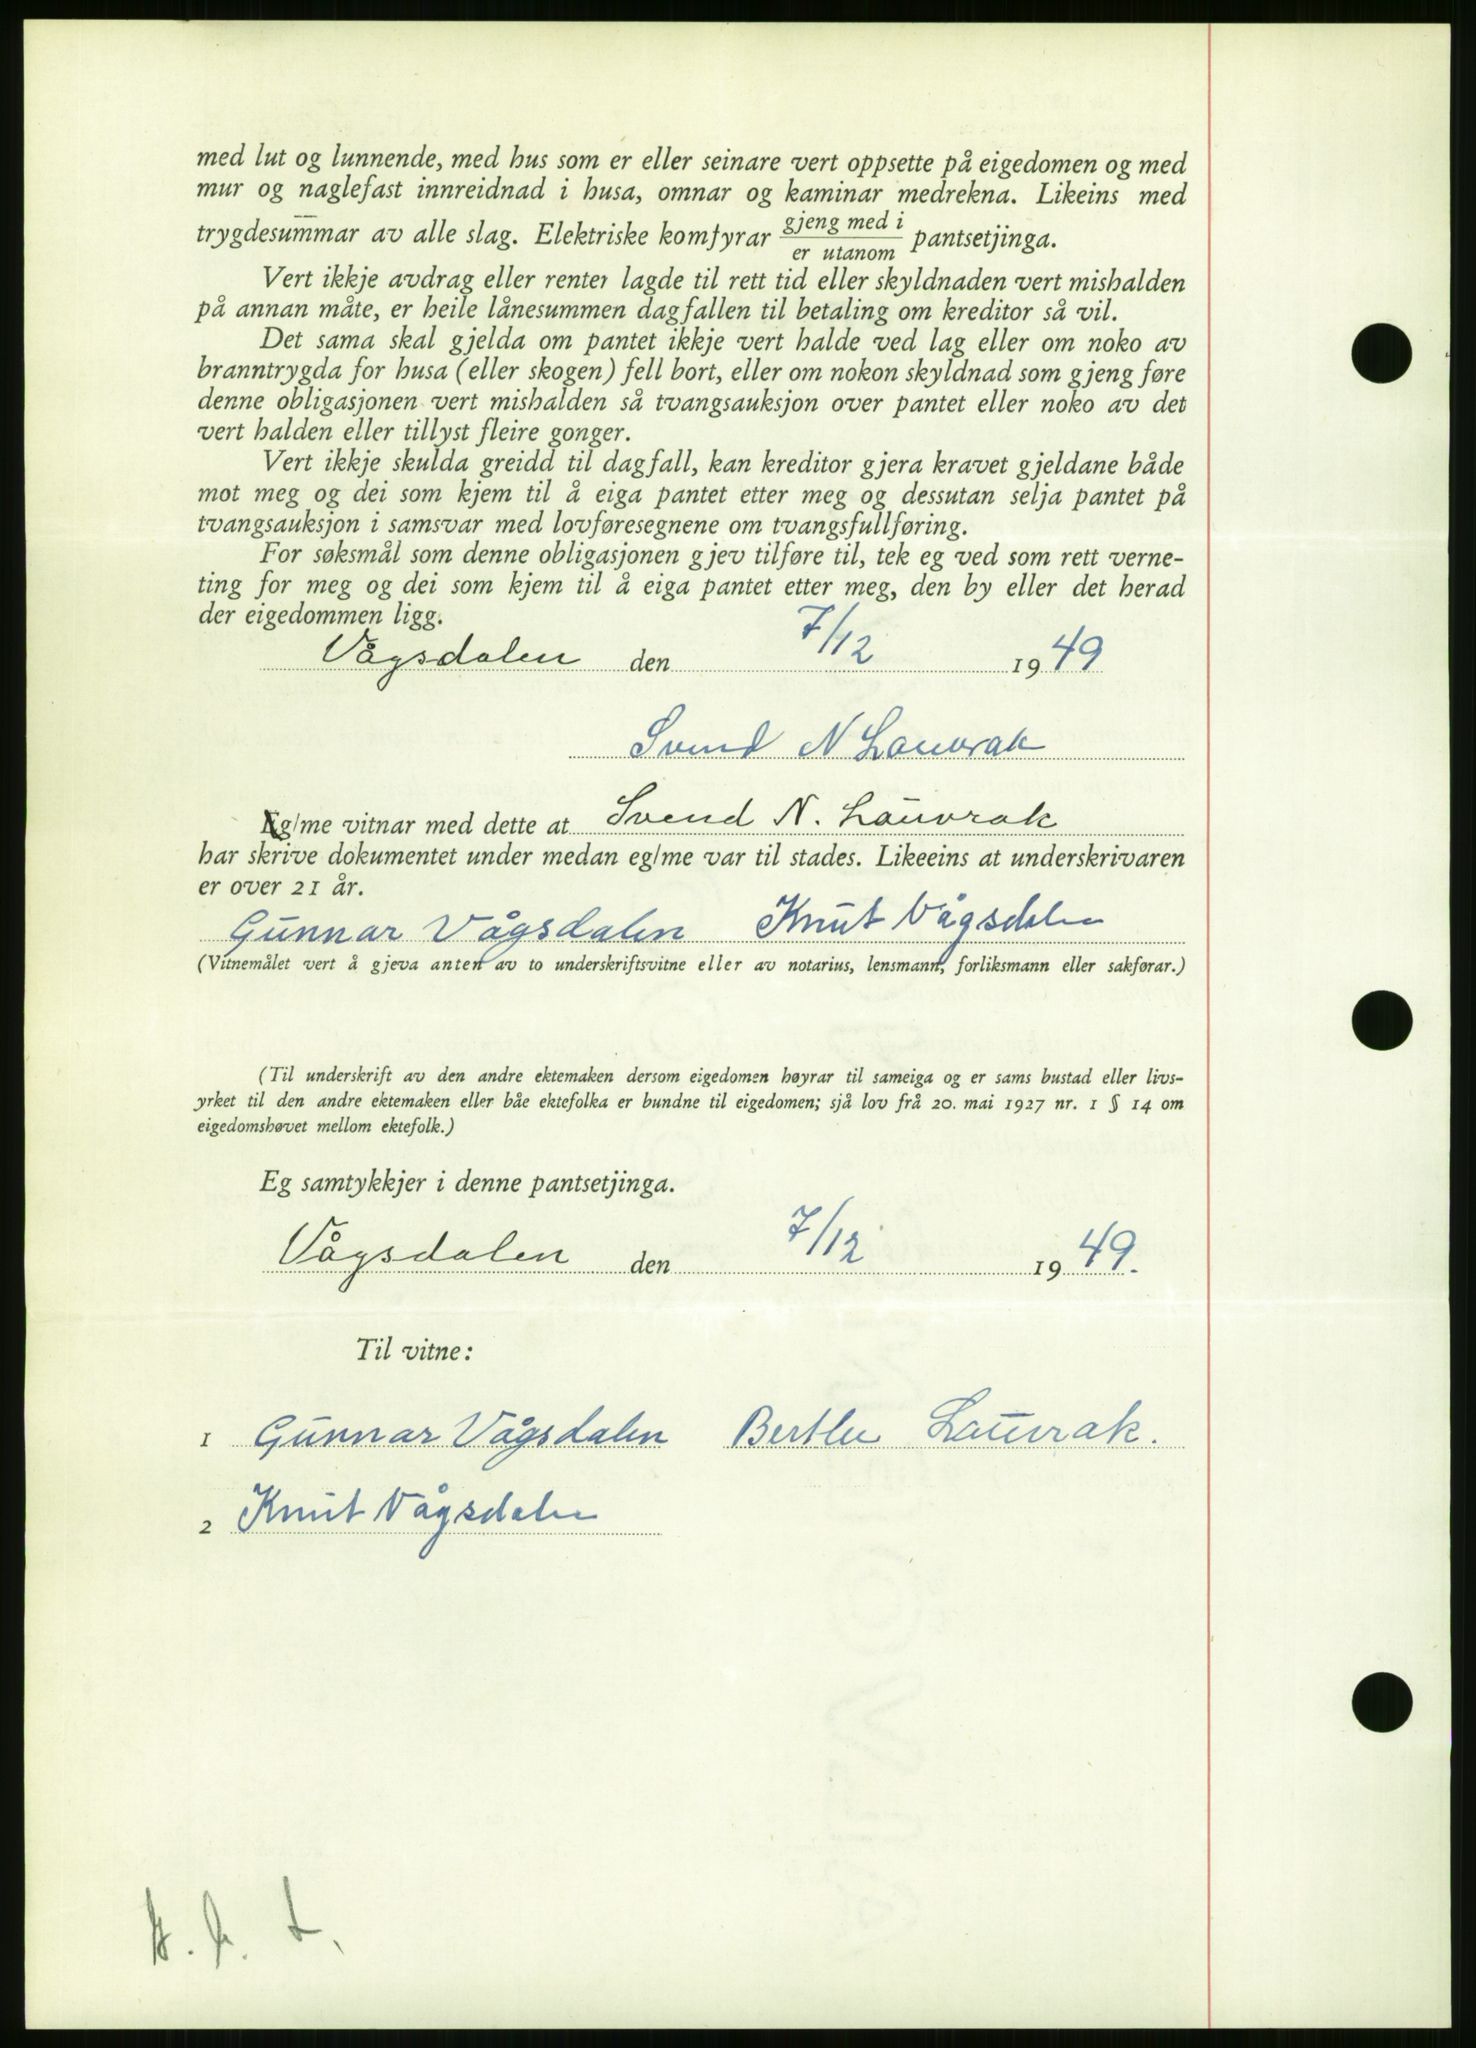 med lut og lunnende, med hus som er eller seinare vert oppsette på eigedomen og med
mur og naglefast innreidnad i husa, omnar og kaminar medrekna. Likeins med
trygdesummar av alle slag. Elektriske komfyrar gjeng med i / er utanom pantsetjinga.
Vert ikkje avdrag eller renter lagde til rett tid eller skyldnaden vert mishalden
på annan måte, er heile lånesummen dagfallen til betaling om kreditor så vil.
Det sama skal gjelda om pantet ikkje vert halde ved lag eller om noko av
branntrygda for husa (eller skogen) fell bort, eller om nokon skyldnad som gjeng føre
denne obligasjonen vert mishalden så tvangsauksjon over pantet eller noko av det
vert halden eller tillyst fleire gonger.
Vert ikkje skulda greidd til dagfall, kan kreditor gjera kravet gjeldane både
mot meg og dei som kjem til å eiga pantet etter meg og dessutan selja pantet på
tvangsauksjon i samsvar med lovføresegnene om tvangsfullføring.
For søksmål som denne obligasjonen gjev tilføre til, tek eg ved som rett verne-
ting for meg og dei som kjem til å eiga pantet etter meg, den by eller det herad
der eigedommen ligg.
Vågsdalen den 7/12 1949
Svend N Lauvrak
Eg/me vitnar med dette at Svend N. Lauvrak
har skrive dokumentet under medan eg/me var til stades. Likeeins at underskrivaren
er over 21 år.
Gunnar Vågsdalen Knut Vågsdalen
(Vitnemålet vert å gjeva anten av to underskriftsvitne eller av notarius, lensmann, forliksmann eller sakførar.)
(Til underskrift av den andre ektemaken dersom eigedomen høyrar til sameiga og er sams bustad eller livs-
yrket til den andre ektemaken eller båe ektefolka er bundne til eigedomen; sjå lov frå 20. mai 1927 nr. 1 § 14 om
eigedomshøvet mellom ektefolk.)
Eg samtykkjer i denne pantsetjinga.
Vågsdalen den 7/12 1949.
Til vitne:
1 Gunnar Vågsdalen Lauvrak.
2 Knut Vågsdalen